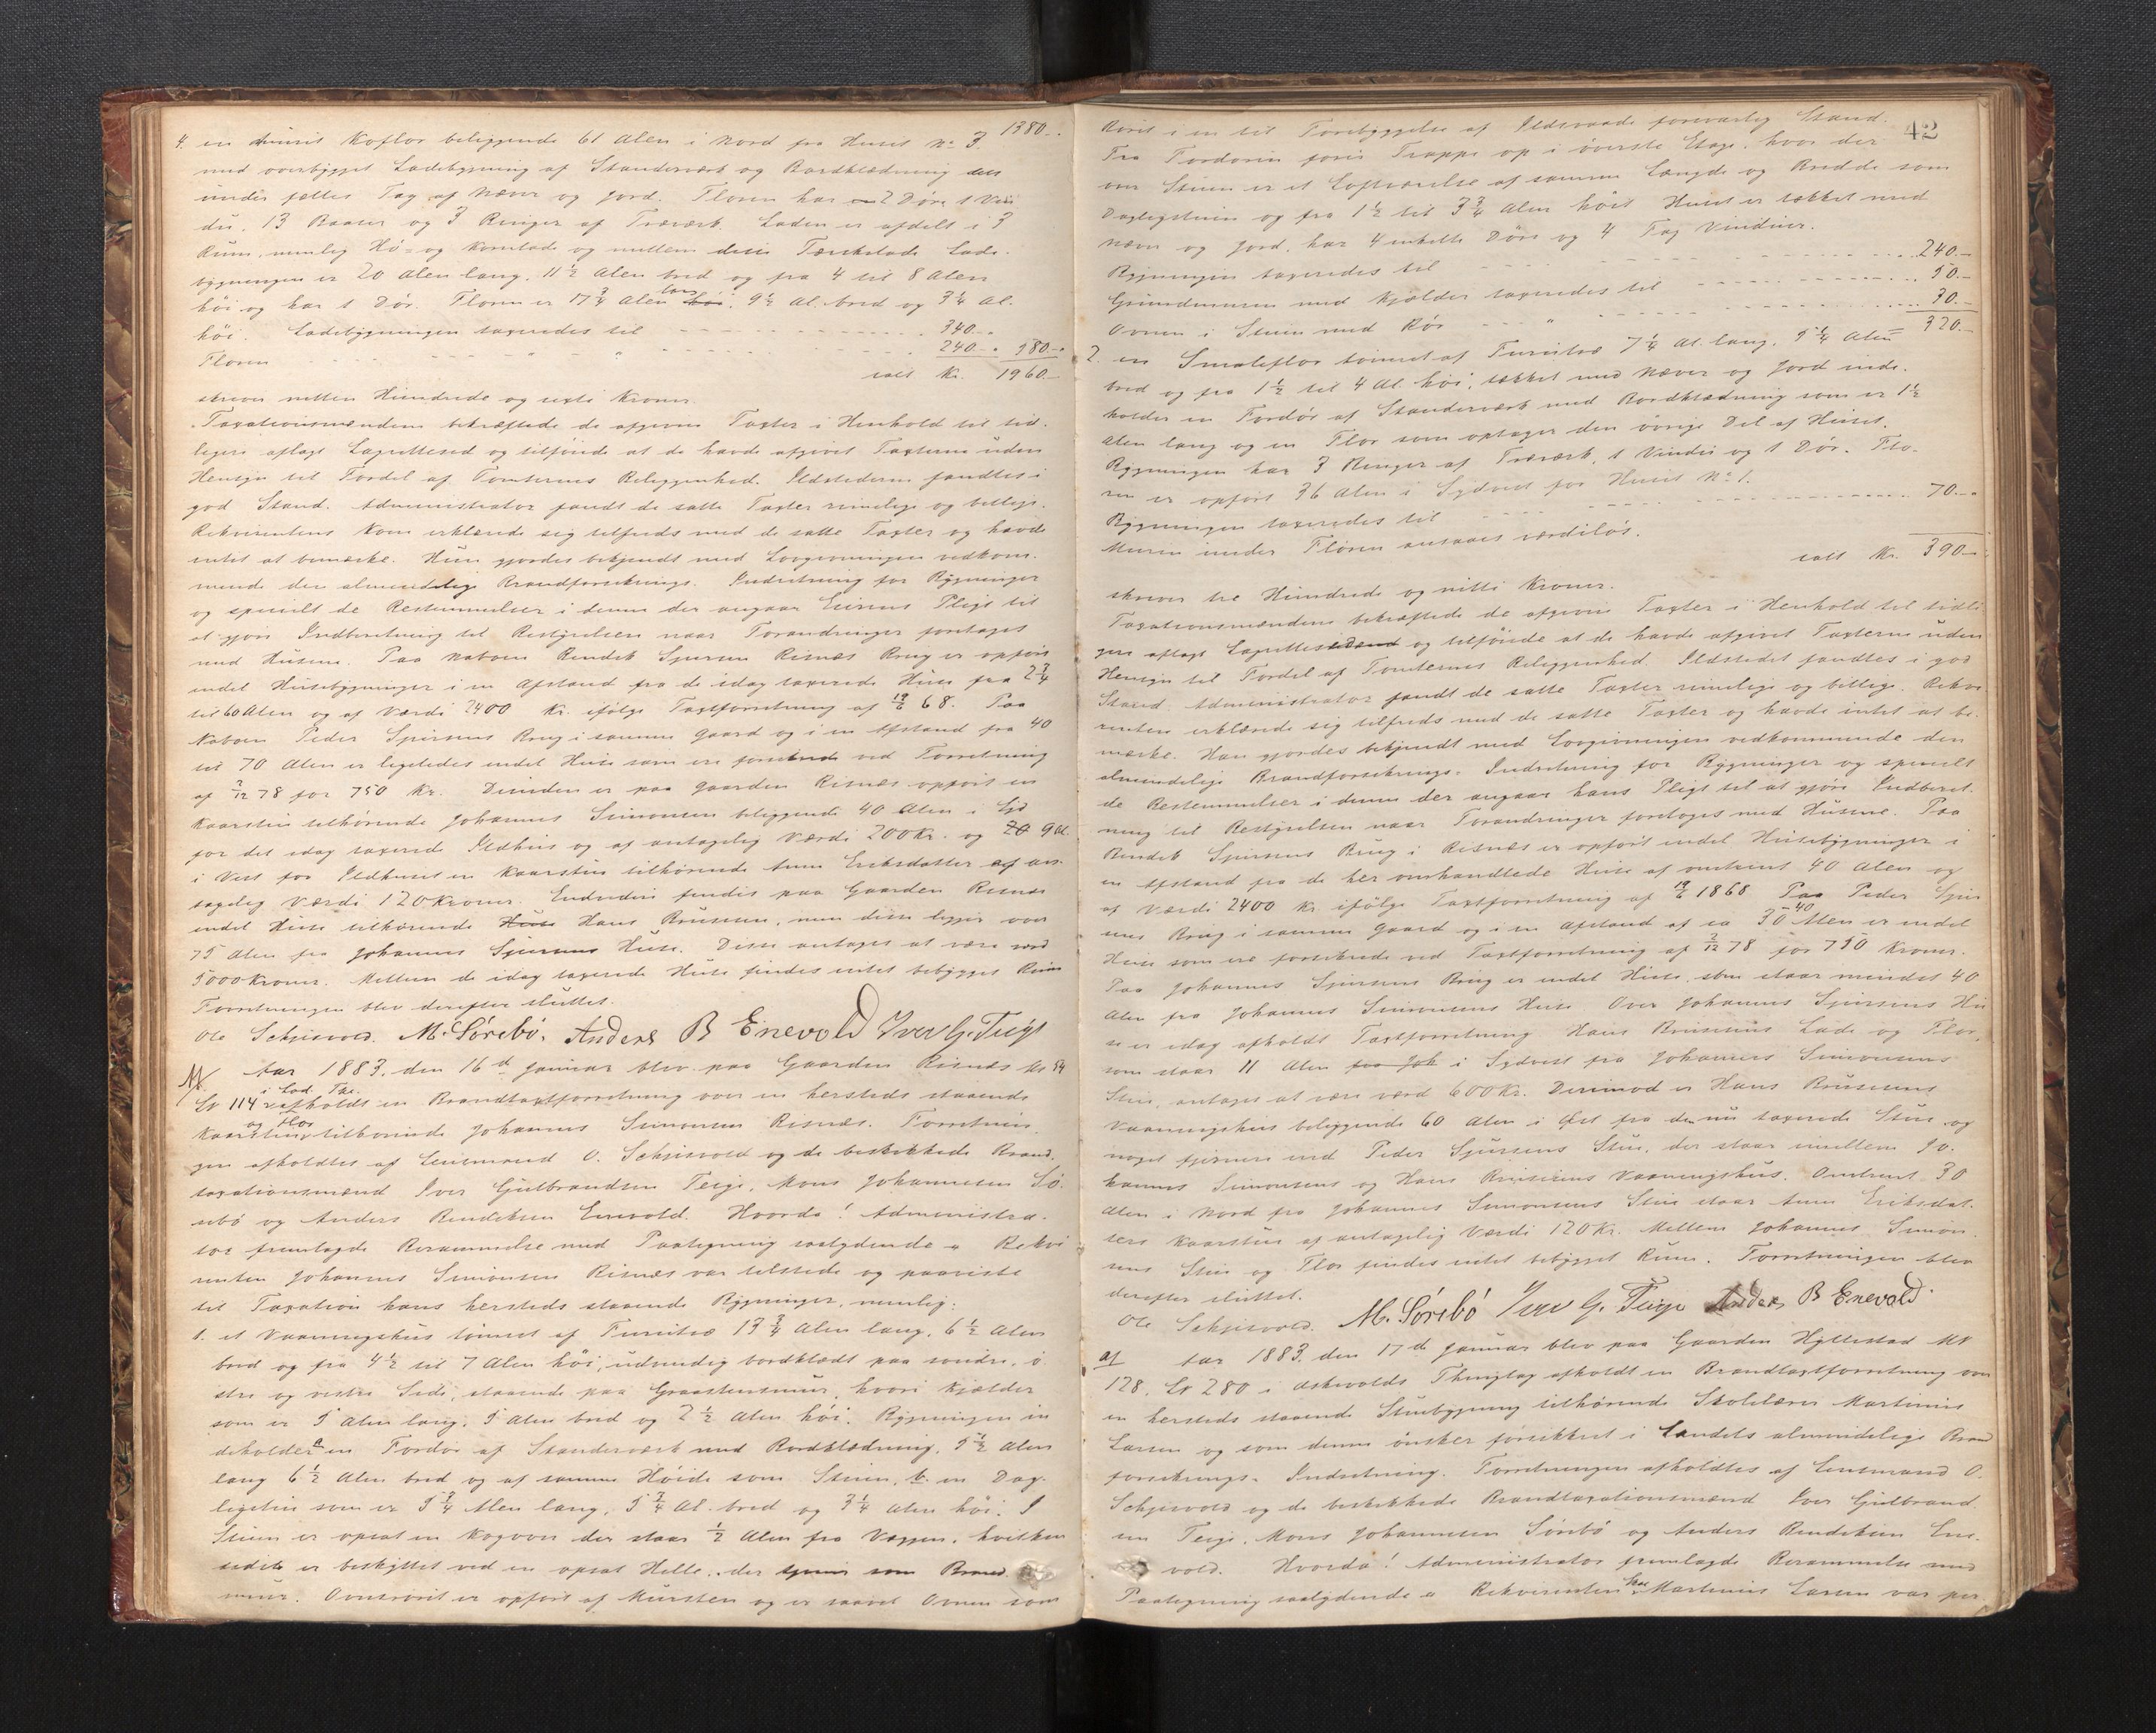 1380..
4. en tømret Koflor beliggende 61 Alen i Nord fra Huset No 3.
med overbygget Ladebygning af Standerværk og Bordklædning
under fælles Tag af Næver og Jord. Floren har 2 Døre 1 Vin
du, 13 Baaser og 3 Binger af Træværk. Laden er afdelt i 3
Rum, nemlig Hø- og Kornlade og mellem disse Tærskelade. Lade-
bygningen er 20 Alen lang, 11 1/2 Alen bred og fra 4 til 8 Alen
høi og har 1 Dør. Floren er 17 3/4 Alen lang, 9 1/2 Al. bred og 3 1/4 Al.
høi. Ladebygningen taxeredes til 340.-
Floren " " 240.- 580.-
ialt Kr. 1960.-
skriver nitten Hundrede og sexti Kroner.
Taxationsmændene bekræftede de afgivne Taxter i Henhold til tid-
ligere aflagt Laugrettesed og tilføiede at de havde afgivet Taxterne uden
Hensyn til Fordel af Tomternes Beliggenhed. Ildstederne fandtes i
god Stand. Administrator fandt de satte Taxter rimelige og billige.
Rekvirentens Kone erklærede sig tilfreds med de satte Taxter og havde
intet at bemærke. Hun gjordes bekjendt med Lovgivningen vedkom-
mende den almindelige Brandforsikrings-Indretning for Bygninger
og specielt de Bestemmelser i denne der angaar Eierens Pligt til
at gjøre Indberetning til Bestyrelsen naar Forandringer foretages
med Husene. Paa Naboen Bendik Sjursen Risnæs Brug er opført
endel Husebygninger i en Afstand fra de idag taxerede Huse fra 2 3/4
til 60 Alen og af Værdi 2400 Kr. ifølge Taxtforretning af 19/6 68. Paa
Naboen Peder Sjursens Brug i samme Gaard og i en Afstand fra 40
til 70 Alen er ligeledes endel Huse som ere forsikrede ved Forretning
af 2/12 78 for 750 Kr. Desuden er paa Gaarden Risnæs opført en
Kaarstue tilhørende Johannes Simonsen beliggende 40 Alen i Syd
for det idag taxerede Ildhus og af antagelig Værdi 200 Kr. og 20 9 Al.
i Vest for Ildhuset en Kaarstue tilhørende Anne Eriksdatter af an-
tagelig Værdi 120 Kroner. Endvidere findes paa Gaarden Risnæs
endel Huse tilhørende Huse Hans Bruseens, men disse ligger over
75 Alen fra Johannes Sjursens Huse. Disse antages at være værd
5000 Kroner. Mellem de idag taxerede Huse findes intet bebygget Rum
Forretningen blev derefter sluttet.
Ole Schjisvold. M. Sørebø. Anders B Enevold Iver G. Teige
Aar 1883, den 16d Januar blev paa Gaarden Risnæs M 54
Lv 114 i Lad. Thl. afholdt en Brandtaxtforretning over en hersteds staaende
Kaarstue og Flor tilhørende Johannes Simonsen Risnæs. Forretnin-
gen afholdtes af Lensmand O. Schjisvold og de beskikkede Brand-
taxationsmænd Iver Gulbrandsen Teige, Mons Johannesen Sø-
rebø og Anders Bendiksen Enevold. Hvorda! Administra-
tor fremlagde Berammelse med Paategning saalydende a Rekvi
renten Johannes Simonsen Risnæs var tilstede og paaviste
til Taxation hans hersteds staaende Bygninger, nemlig:
1. et Vaaningshus tømret af Furutræ 13 3/4 Alen lang, 6 1/2 Alen
bred og fra 4 1/2 til 7 Alen høi, udvendig bordklædt paa søndre, ø
stre og vestre Side, staaende paa Graastensmur, hvori Kjælder
som er 5 Alen lang, 5 Alen bred og 2 1/2 Alen høi. Bygningen in
deholder a en Fordør af Standerværk med Bordklædning, 5 1/2 Alen
lang 6 1/2 Alen bred og af samme Høide som Stuen, b. en Dag-
ligstue som er 5 3/4 Alen lang, 5 3/4 Al. bred og 3 1/4 Alen høi. I
Stuen er opsat en Kogovn der staar 1/2 Alen fra Væggen, hvilken
sidste er beskyttet ved en opsat Helle, der tjener som Brand-
mur. Ovnsrøret er opført af Mursten og er saavel Ovnen som
42
Røret i en til Forebyggelse af Ildsvaade forsvarlig Stand.
Fra Fordøren fører Trappe op i øverste Etage, hvor der
over Stuen er et Loftværelse af samme Længde og Bredde som
Dagligstuen og fra 1 1/2 til 3 3/4 Alen høit. Huset er tækket med
Næver og Jord, har 4 enkelte Døre og 4 Fag Vinduer.
Bygningen taxeredes til 240.-
Grundmuren med Kjælder taxeredes til 50.-
Ovnen i Stuen med Rør " 30.-
320.-
2. en Smaleflor tømret af Furutræ 7 1/4 Al. lang, 5 1/4 Alen
bred og fra 1 1/2 til 4 Al. høi, tækket med Næver og Jord inde-
holder en Fordør af Standerværk med Bordklædning som er 1 1/2
Alen lang og en Flor som optager den øvrige Del af Huset.
Bygningen har 3 Binger af Træværk, 1 Vindu og 1 Dør. Flo-
ren er opført 36 Alen i Sydvest for Huset No 1.
Bygningen taxeredes til 70.-
Muren under Floren ansaaes værdiløs.
ialt Kr. 390.-
skriver tre Hundrede og nitti Kroner.
Taxationsmændene bekræftede de afgivne Taxter i Henhold til tidli-
gere aflagt Laugrettesed og tilføiede at de havde afgivet Taxterne uden
Hensyn til Fordel af Tomternes Beliggenhed. Ildstedet fandtes i god
Stand. Administrator fandt de satte Taxter rimelige og billige. Rekvi
renten erklærede sig tilfreds med de satte Taxter og havde intet at be-
mærke. Han gjordes bekjendt med Lovgivningen vedkommende den
almindelige Brandforsikrings-Indretning for Bygninger og specielt
de Bestemmelser i denne der angaar hans Pligt til at gjøre Indberet-
ning til Bestyrelsen naar Forandringer foretages med Husene. Paa
Bendik Sjursens Brug i Risnæs er opført endel Husebygninger i
en Afstand fra de her omhandlede Huse af omtrent 40 Alen og
af Værdi 2400 Kr. ifølge Taxtforretning af 19/6 1868. Paa Peder Sjur
sens Brug i samme Gaard og i en Afstand af ca 30 40 Alen er endel
Huse som ere forsikrede ved Taxtforretning af 2/12 78 for 750 Kroner.
Paa Johannes Sjursens Brug er endel Huse, som staar mindst 40
Alen fra Johannes Simonsens Huse. Over Johannes Sjursens Hu
se er idag afholdt Taxtforretning. Hans Bruseens Lade og Flor,
som staar 11 Alen fra Joh i Sydvest fra Johannes Simonsens
Stue, antages at være værd 600 Kr. Derimod er Hans Bruseens
Vaaningshus beliggende 60 Alen i Øst fra den nu taxerede Stue og
noget fjernere end Peder Sjursens Stue, der staar imellem Jo-
hannes Simonsens og Hans Bruseens Vaaningshus. Omtrent 30
Alen i Nord fra Johannes Simonsens Stue staar Anne Eriksdat-
ters Kaarstue af antagelig Værdi 120 Kr. Mellem Johannes Simon
sens Stue og Flor findes intet bebygget Rum. Forretningen blev
derefter sluttet.
Ole Schjisvold. M. Sørebø Iver G. Teige Anders B Enevold.
Aar 1883, den 17d Januar blev paa Gaarden Hyllestad M
128, Lv 280 i Askvolds Thinglag afholdt en Brandtaxtforretning over
en hersteds staaende Stuebygning tilhørende Skolelærer Martinus
Larsen og som denne ønsker forsikkret i Landets almindelige Brand
forsikrings-Indretning. Forretningen afholdtes af Lensmand O.
Schjisvold og de beskikkede Brandtaxationsmænd Iver Gulbrand-
sen Teige, Mons Johannesen Sørebø og Anders Bendiksen Ene-
vold. Hvorda! Administrator fremlagde Berammelse med
Paategning saalydende a Rekvirenten Hr. Martinus Larsen var per